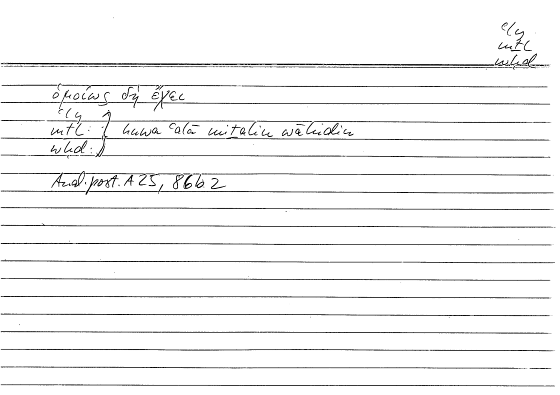 ʿly
mṯl
wḥd
ὁμοίως δὴ ἔχει
ʿly
mṯl: } huwa ʿalā miṯālin wāḥidin
wḥd:
Anal. post. A 25, 86b2